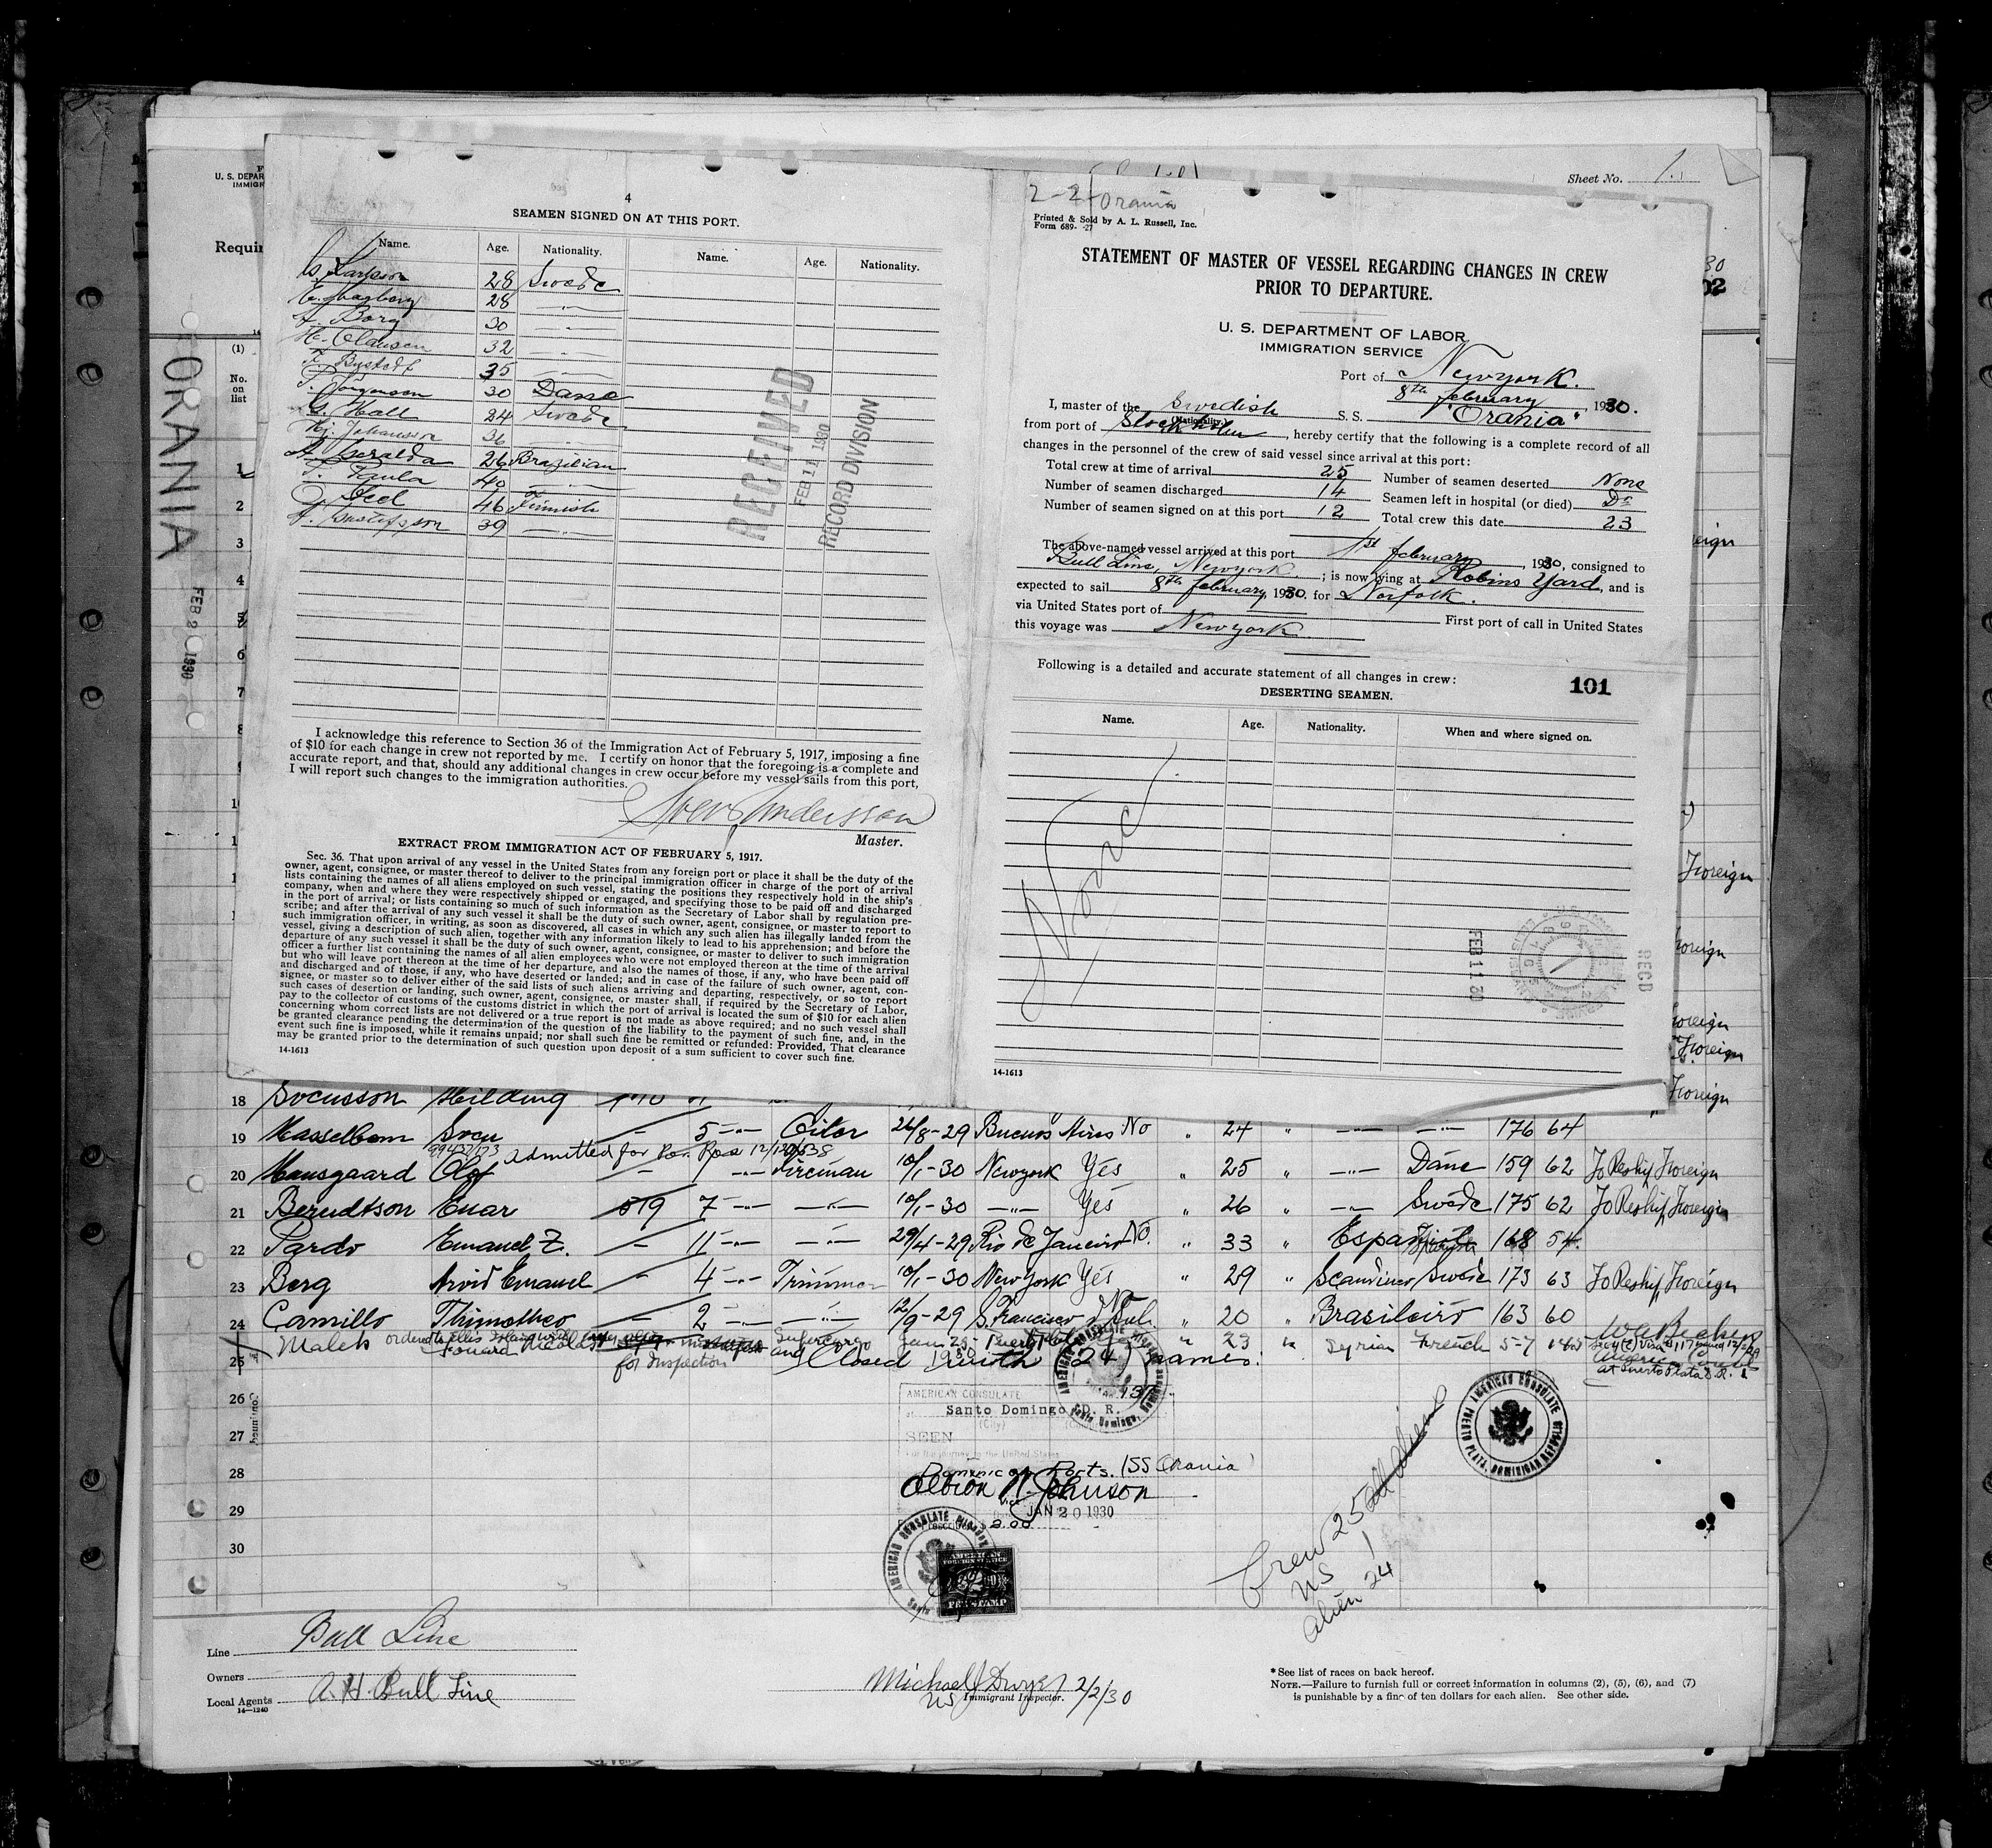 Sheet No. 1.
U. S. DEPAR
IMMIGR
Requir
(1)
No.
on
list
ORANIA
FEB 2 1930
4
SEAMEN SIGNED ON AT THIS PORT.
Name. Age. Nationality. Name. Age. Nationality.
Larsson 28 Swede
E. Hagberg 28 -"-
Borg 30 -"-
H. Clausen 32 -"-
Bystedt 35 -"-
Jörgensen 30 Dane
G. Hall 24 Swede
Hj. Johansson 36 -"-
Geralda 26 Brazilian
Paula 40 -"-
46 Finnish
Gustafsson 39 -"-
RECEIVED
FEB 11 1930
RECORD DIVISION
I acknowledge this reference to Section 36 of the Immigration Act of February 5, 1917, imposing a fine
of $10 for each change in crew not reported by me. I certify on honor that the foregoing is a complete and
accurate report, and that, should any additional changes in crew occur before my vessel sails from this port,
I will report such changes to the immigration authorities.
Sven Andersson
Master.
EXTRACT FROM IMMIGRATION ACT OF FEBRUARY 5, 1917.
Sec. 36. That upon arrival of any vessel in the United States from any foreign port or place it shall be the duty of the
owner, agent, consignee, or master thereof to deliver to the principal immigration officer in charge of the port of arrival
lists containing the names of all aliens employed on such vessel, stating the positions they respectively hold in the ship's
company, when and where they were respectively shipped or engaged, and specifying those to be paid off and discharged
in the port of arrival; or lists containing so much of such information as the Secretary of Labor shall by regulation pre-
scribe; and after the arrival of any such vessel it shall be the duty of such owner, agent, consignee, or master to report to
such immigration officer, in writing, as soon as discovered, all cases in which any such alien has illegally landed from the
vessel, giving a description of such alien, together with any information likely to lead to his apprehension; and before the
departure of any such vessel it shall be the duty of such owner, agent, consignee, or master to deliver to such immigration
officer a further list containing the names of all alien employees who were not employed thereon at the time of the arrival
but who will leave port thereon at the time of her departure, and also the names of those, if any, who have been paid off
and discharged and of those, if any, who have deserted or landed; and in case of the failure of such owner, agent, con-
signee, or master so to deliver either of the said lists of such aliens arriving and departing, respectively, or so to report
such cases of desertion or landing, such owner, agent, consignee, or master shall, if required by the Secretary of Labor,
pay to the collector of customs of the customs district in which the port of arrival is located the sum of $10 for each alien
concerning whom correct lists are not delivered or a true report is not made as above required; and no such vessel shall
be granted clearance pending the determination of the question of the liability to the payment of such fine, and, in the
event such fine is imposed, while it remains unpaid; nor shall such fine be remitted or refunded: Provided, That clearance
may be granted prior to the determination of such question upon deposit of a sum sufficient to cover such fine.
14-1613
2-2 Orania
Printed & Sold by A. L. Russell, Inc.
Form 689- -27
STATEMENT OF MASTER OF VESSEL REGARDING CHANGES IN CREW
PRIOR TO DEPARTURE.
U. S. DEPARTMENT OF LABOR
IMMIGRATION SERVICE
Port of Newyork.
8th february, 1930.
I, master of the Swedish S. S. "Orania"
(Nationality)
from port of Stockholm, hereby certify that the following is a complete record of all
changes in the personnel of the crew of said vessel since arrival at this port:
Total crew at time of arrival 25 Number of seamen deserted None
Number of seamen discharged 14 Seamen left in hospital (or died) Do
Number of seamen signed on at this port 12 Total crew this date 23
The above-named vessel arrived at this port 1st february, 1930, consigned to
Bull Line, Newyork.; is now lying at Robins Yard, and is
expected to sail 8th february, 1930. for Norfolk.
via United States port of First port of call in United States
this voyage was Newyork
Following is a detailed and accurate statement of all changes in crew:
101
DESERTING SEAMEN.
Name. Age. Nationality. When and where signed on.
None.
FEB 11 30
RECD
14-1613
30
02
1
2
3
4
5
6
7
8
eign
Foreign
oreign
oreign
Foreign
Foreign
18 Svensson Hilding
19 Hasselbom Sven — 5 -"- Oiler 26/8-29 Buenos Aires No " 24 " -"- -"- 176 64
99437/73 admitted for Per. Res 12/12/38
20 Hansgaard Olof — 1 -"- Fireman 10/1-30 Newyork Yes " 25 " -"- Dane 159 62 To Reship Foreign
21 Berndtson Enar 519 7 -"- -"- 10/1-30 -"- Yes " 26 " -"- Swede 175 62 To Reship Foreign
22 Pardo Emanuel Z. — 11 -"- -"- 29/4-29 Rio de Janeiro No. " 33 " Español Spanish 168 54.
23 Berg Arvid Emanuel — 4 -"- Trimmer 10/1-30 New York Yes " 29 " Scandinav Swede 173 63 To Reship Foreign
24 Camillo Thimotheo — 2 -"- -"- 12/9-29 S. Francisco d Sul No " 20 " Brasileiro 163 60
Malek Supercargo Jan 23- 1930 " 23 " Syrian French 5-7 145
25 for Inspection and Closed with 24 names.
at Puerto Plata D.R.
26
27
28
29
30
AMERICAN CONSULATE
Santo Domingo, D. R.
(City)
SEEN
For the journey to the United States
Dominican Ports. SS Orania
Albion W. Johnson
Vice
JAN 20 1930
2.00
AMERICAN CONSULATE
AMERICAN FOREIGN SERVICE
FEE STAMP
AMERICAN CONSULATE
PUERTO PLATA, DOMINICAN REPUBLIC
Crew 25 all alien
US 1
alien 24
Line Bull Line
Owners
Local Agents A.H. Bull Line
14—1240
Michael J Dwyer 2/2/30
US Immigrant Inspector.
* See list of races on back hereof.
NOTE.—Failure to furnish full or correct information in columns (2), (5), (6), and (7)
is punishable by a fine of ten dollars for each alien. See other side.